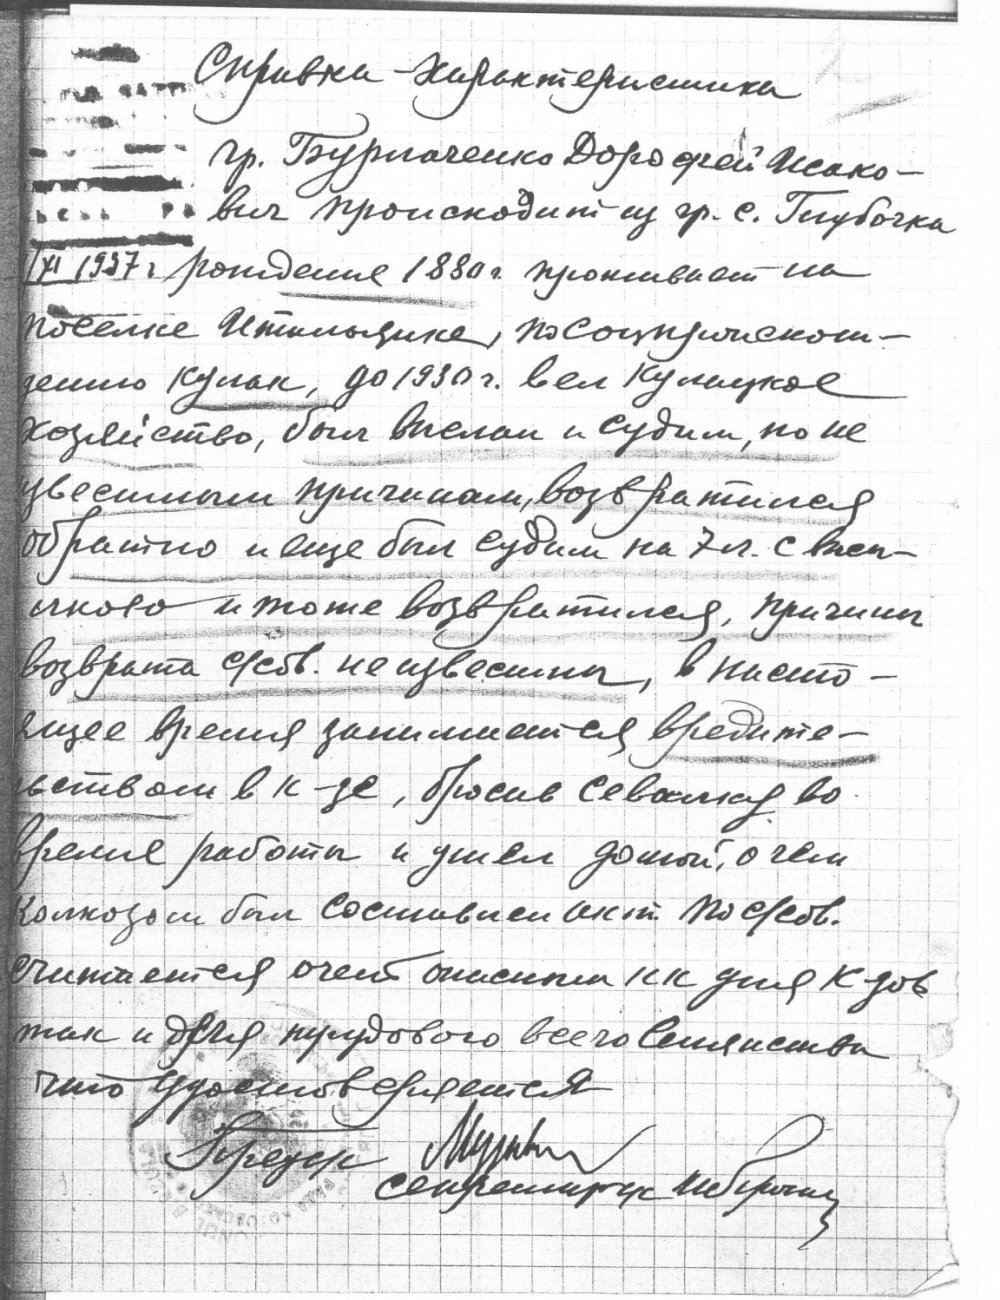 Справка-характеристика
гр. Бурлаченко Дорофей Исако-
вич происходит из гр. с. Глубочка
XI 1937 г рождение 1880 г. проживает на
поселке Итальянке, по соцпроисхож-
дению кулак, до 1930 г. вел кулацкое
хозяйство, был выслан и судим, по не
известным причинам, возвратился
обратно и еще был судим на 7 л. с высы-
лкою и тоже возвратился, причины
возврата с/сов. неизвестны, в насто-
ящее время занимается вредите-
льством в к-зе, бросив сеялку во
время работы и ушел домой, о чем
колхозом был составлен акт по с/сов.
считается очень опасным как для к-зов
так и для трудового всего
что удостоверяется
Предс/с
секретарь